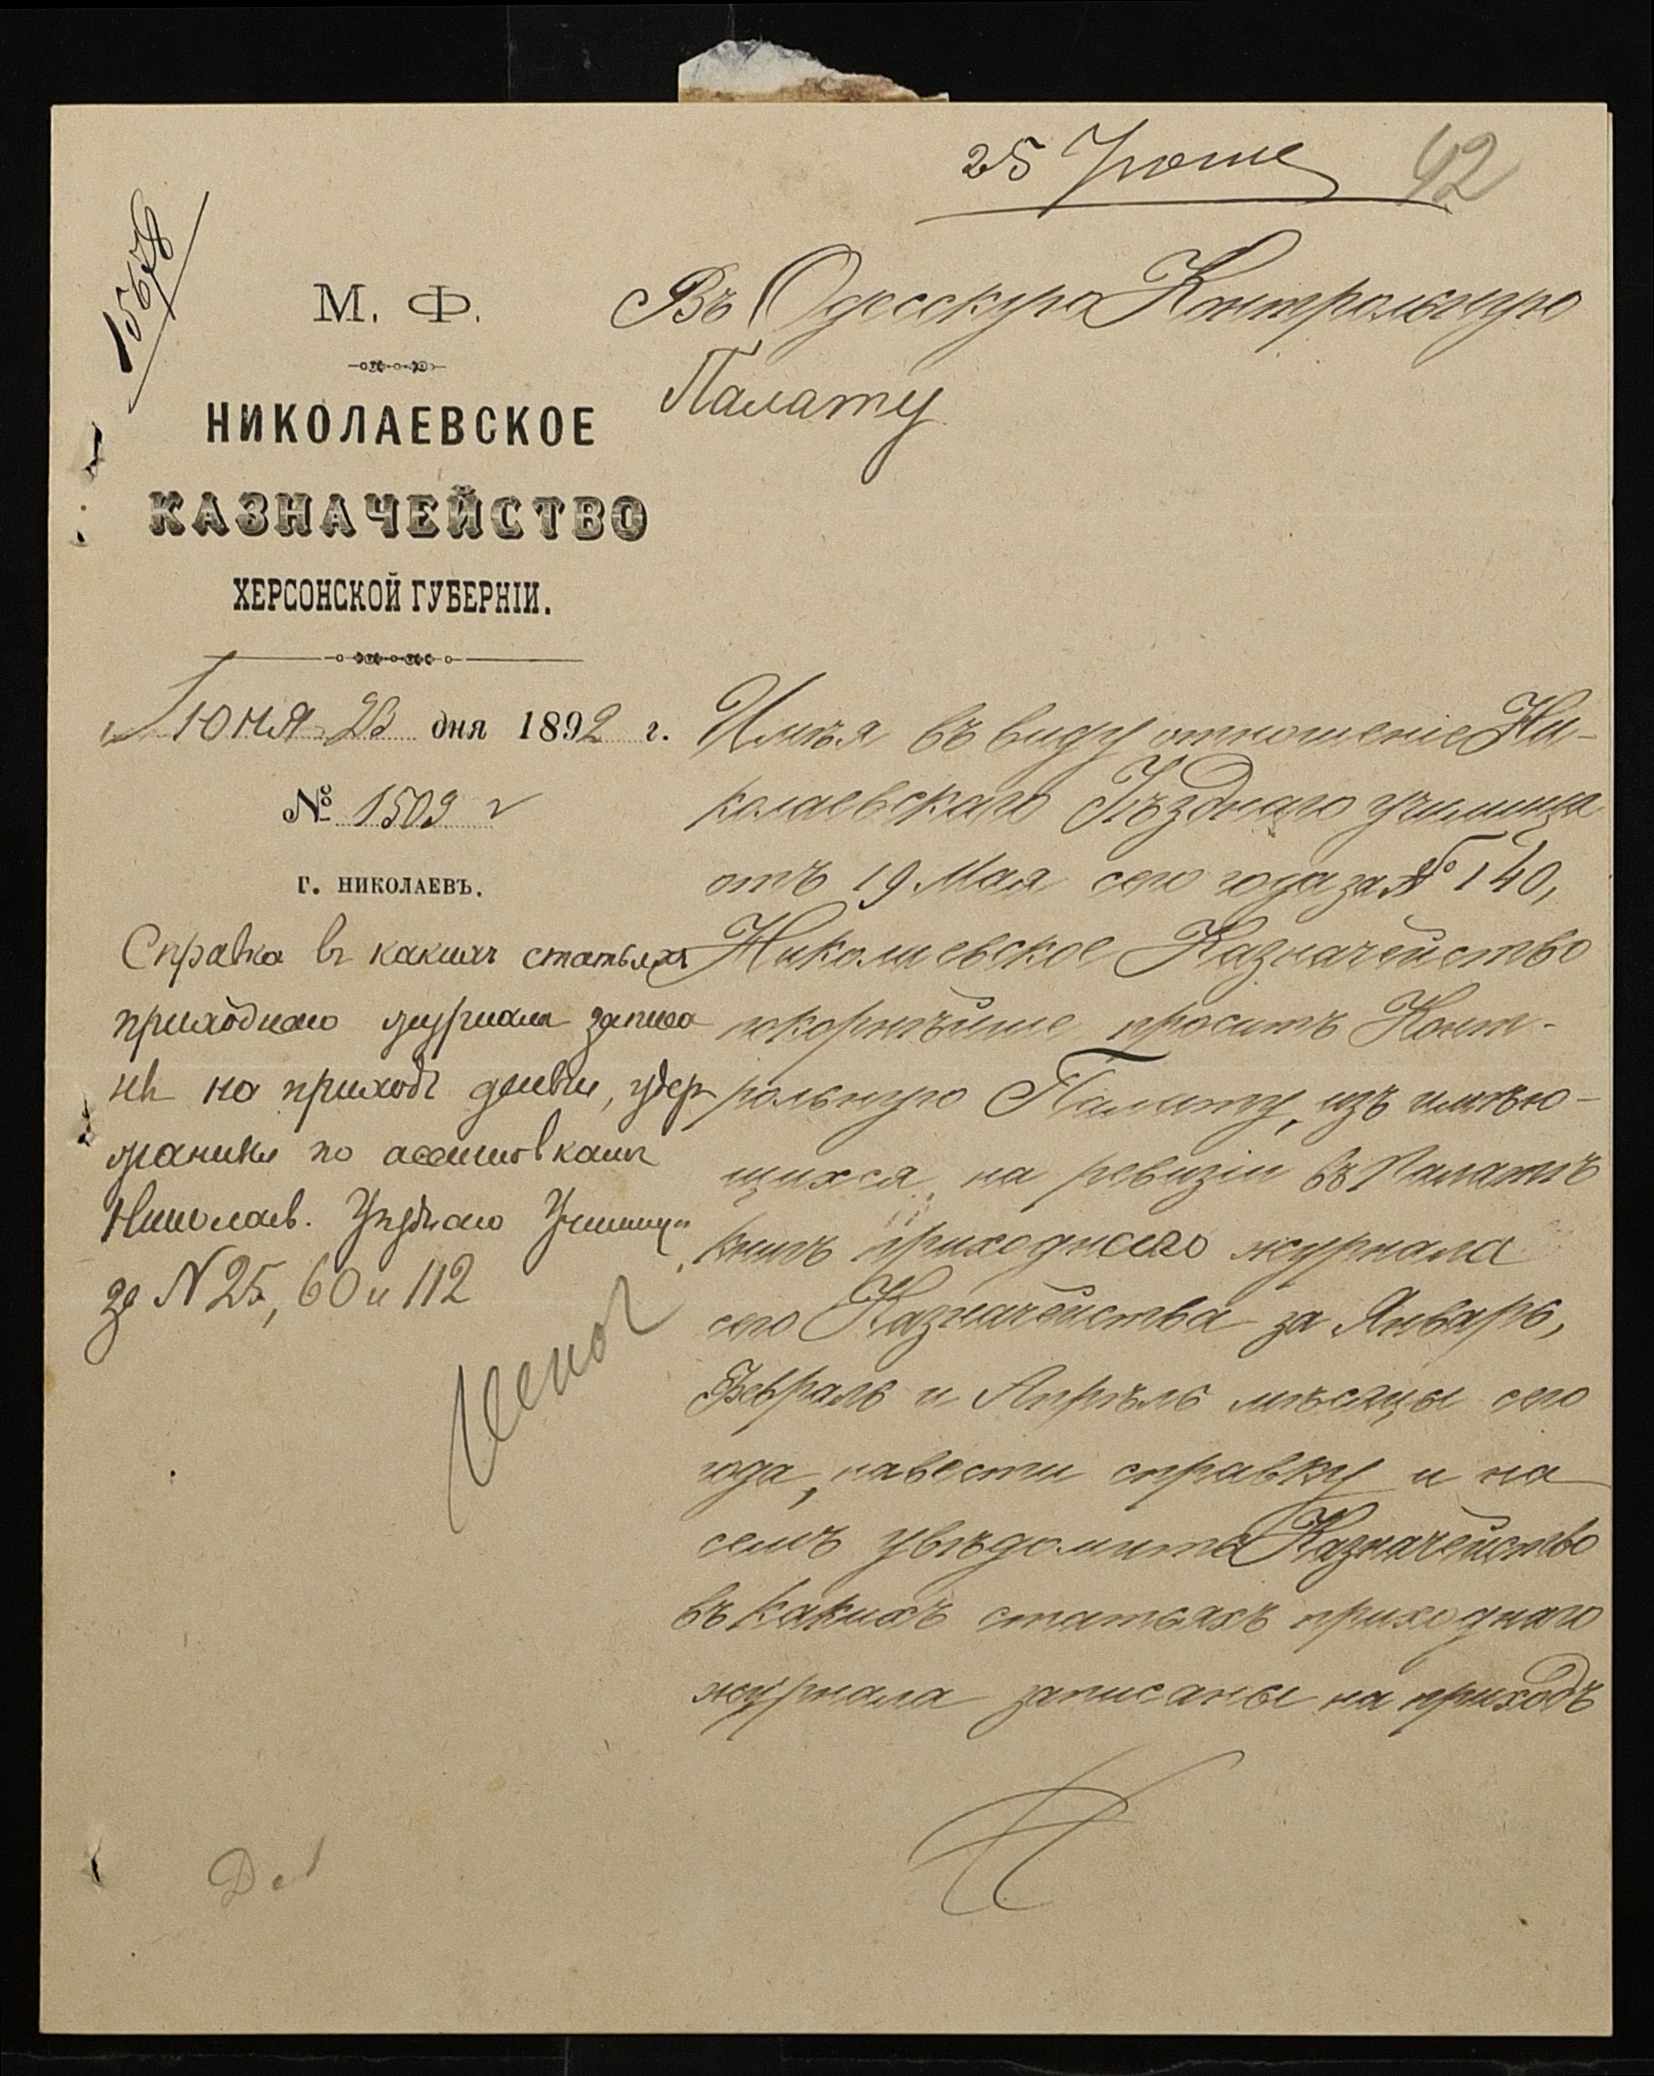 25 Іюня
42
15678
М. Ф.
НИКОЛАЕВСКОЕ
КАЗНАЧЕЙСТВО
ХЕРСОНСКОЙ ГУБЕРНІИ.
Іюня 23 дня 1892 г.
№ 1509
Г. НИКОЛАЕВЪ.
Справка въ какихъ статьяхъ
приходнаго журнала записа
ны на приходъ деньги, удер
жанныя по ассигновкамъ
Николаев. Уѣзднаго Училища
за N 25, 60 и 112
Въ Одесскую Контрольную
Палату
Имѣя въ виду отношеніе Ни-
колаевскаго Уѣзднаго училища
отъ 19 Мая сего года за № 140,
Николаевское Казначейство
покорнѣйше проситъ Конт-
рольную Палату, изъ имѣю-
щихся на ревизіи въ Палатѣ
книгъ приходнаго журнала
сего Казначейства за Январь,
Февраль и Апрѣль мѣсяцы сего
года, навести справку и на
семъ увѣдомить Казначейство
въ какихъ статьяхъ приходнаго
журнала записаны на приходъ